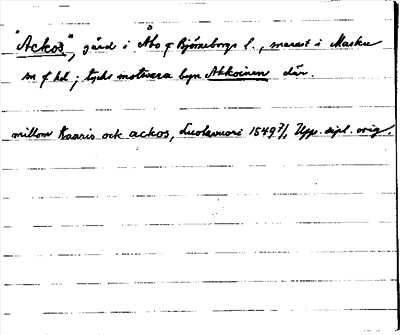 "Ackos", gård i Åbo o Björneborgs l., marast i Masku
sn o hd; tycks motsvara byn Akkoinen där.
millom Kaaris ock ackos, Luolavuori 1549 7/1 Upp. dipl. orig.